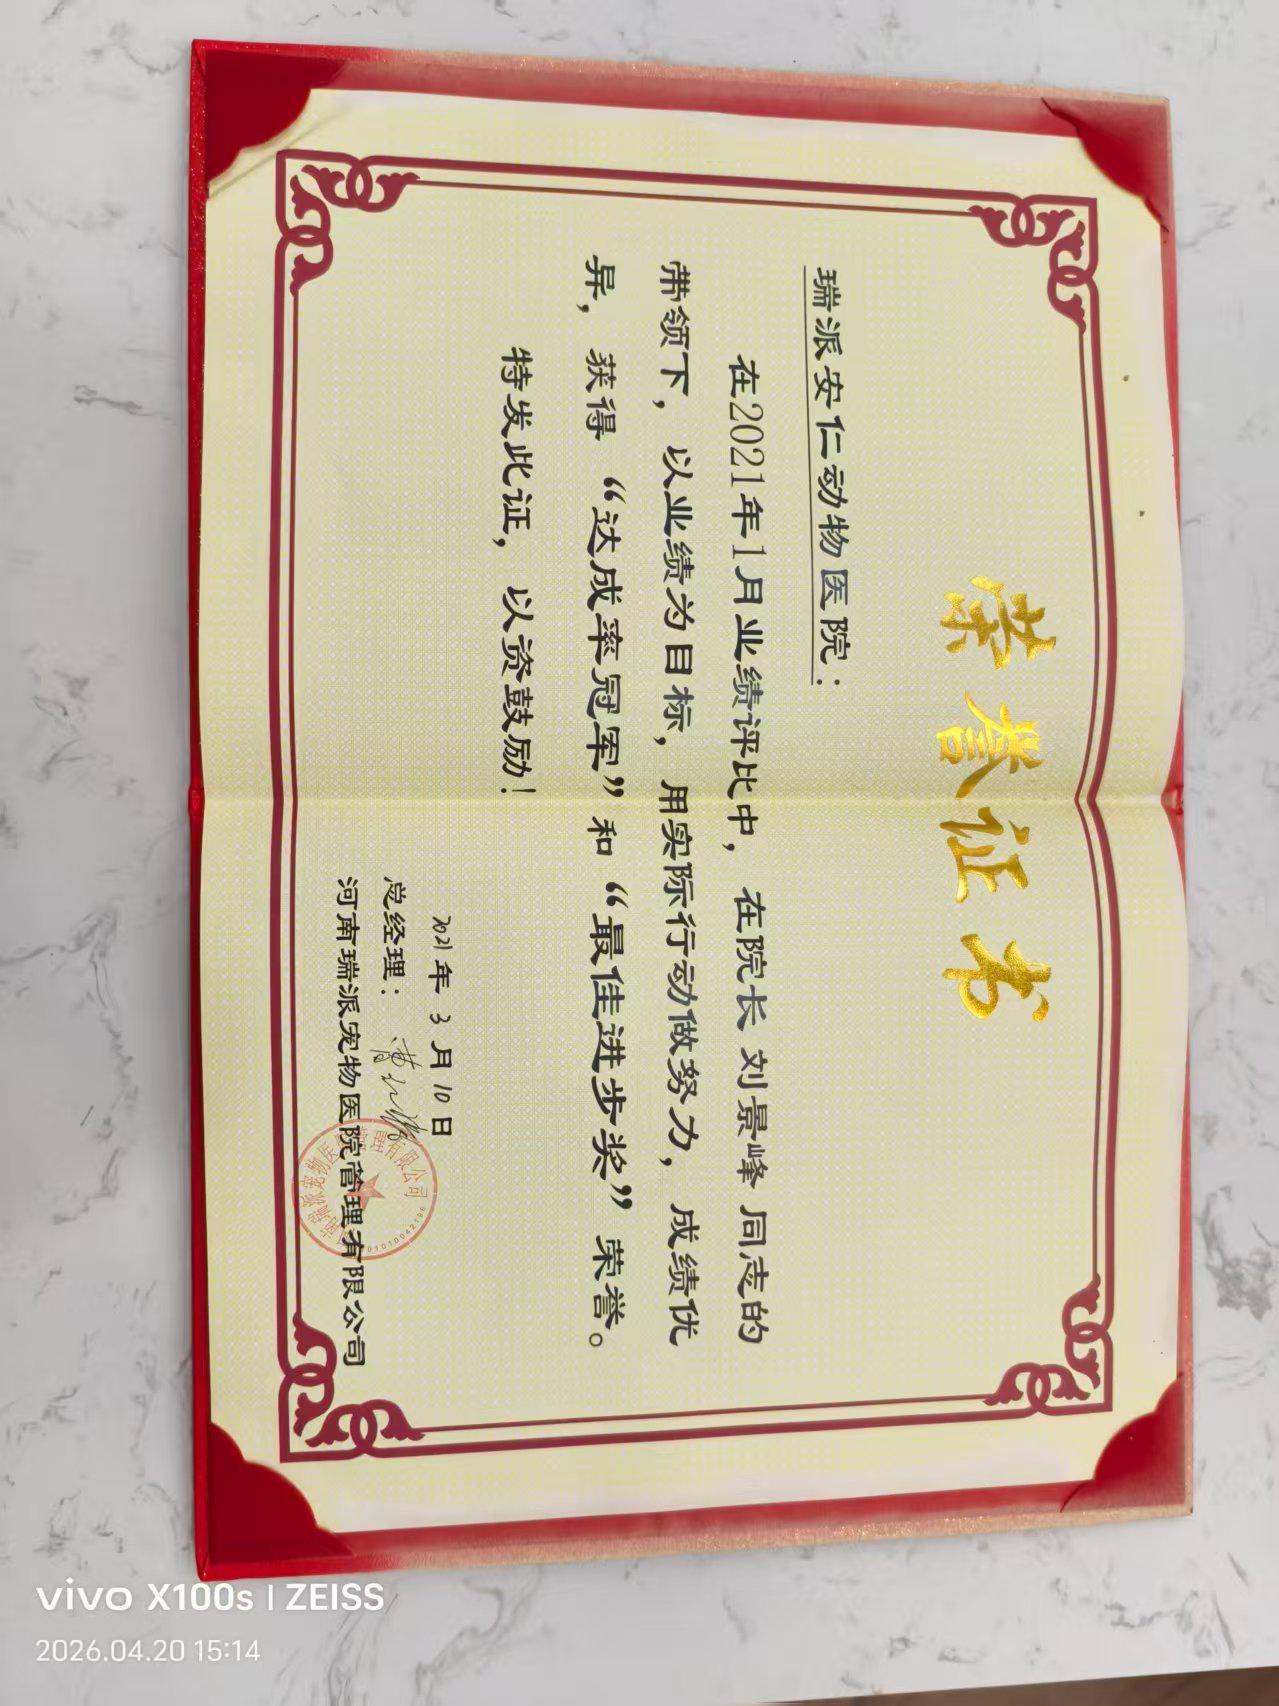 荣誉证书
瑞派安仁动物医院：
在2021年1月业绩评比中，在院长 刘景峰 同志的
带领下，以业绩为目标，用实际行动做努力，成绩优
异，获得“达成率冠军”和“最佳进步奖”荣誉。
特发此证，以资鼓励！
2021年 3 月 10 日
总经理：
河南瑞派宠物医院管理有限公司
vivo X100s | ZEISS
2026.04.20 15:14